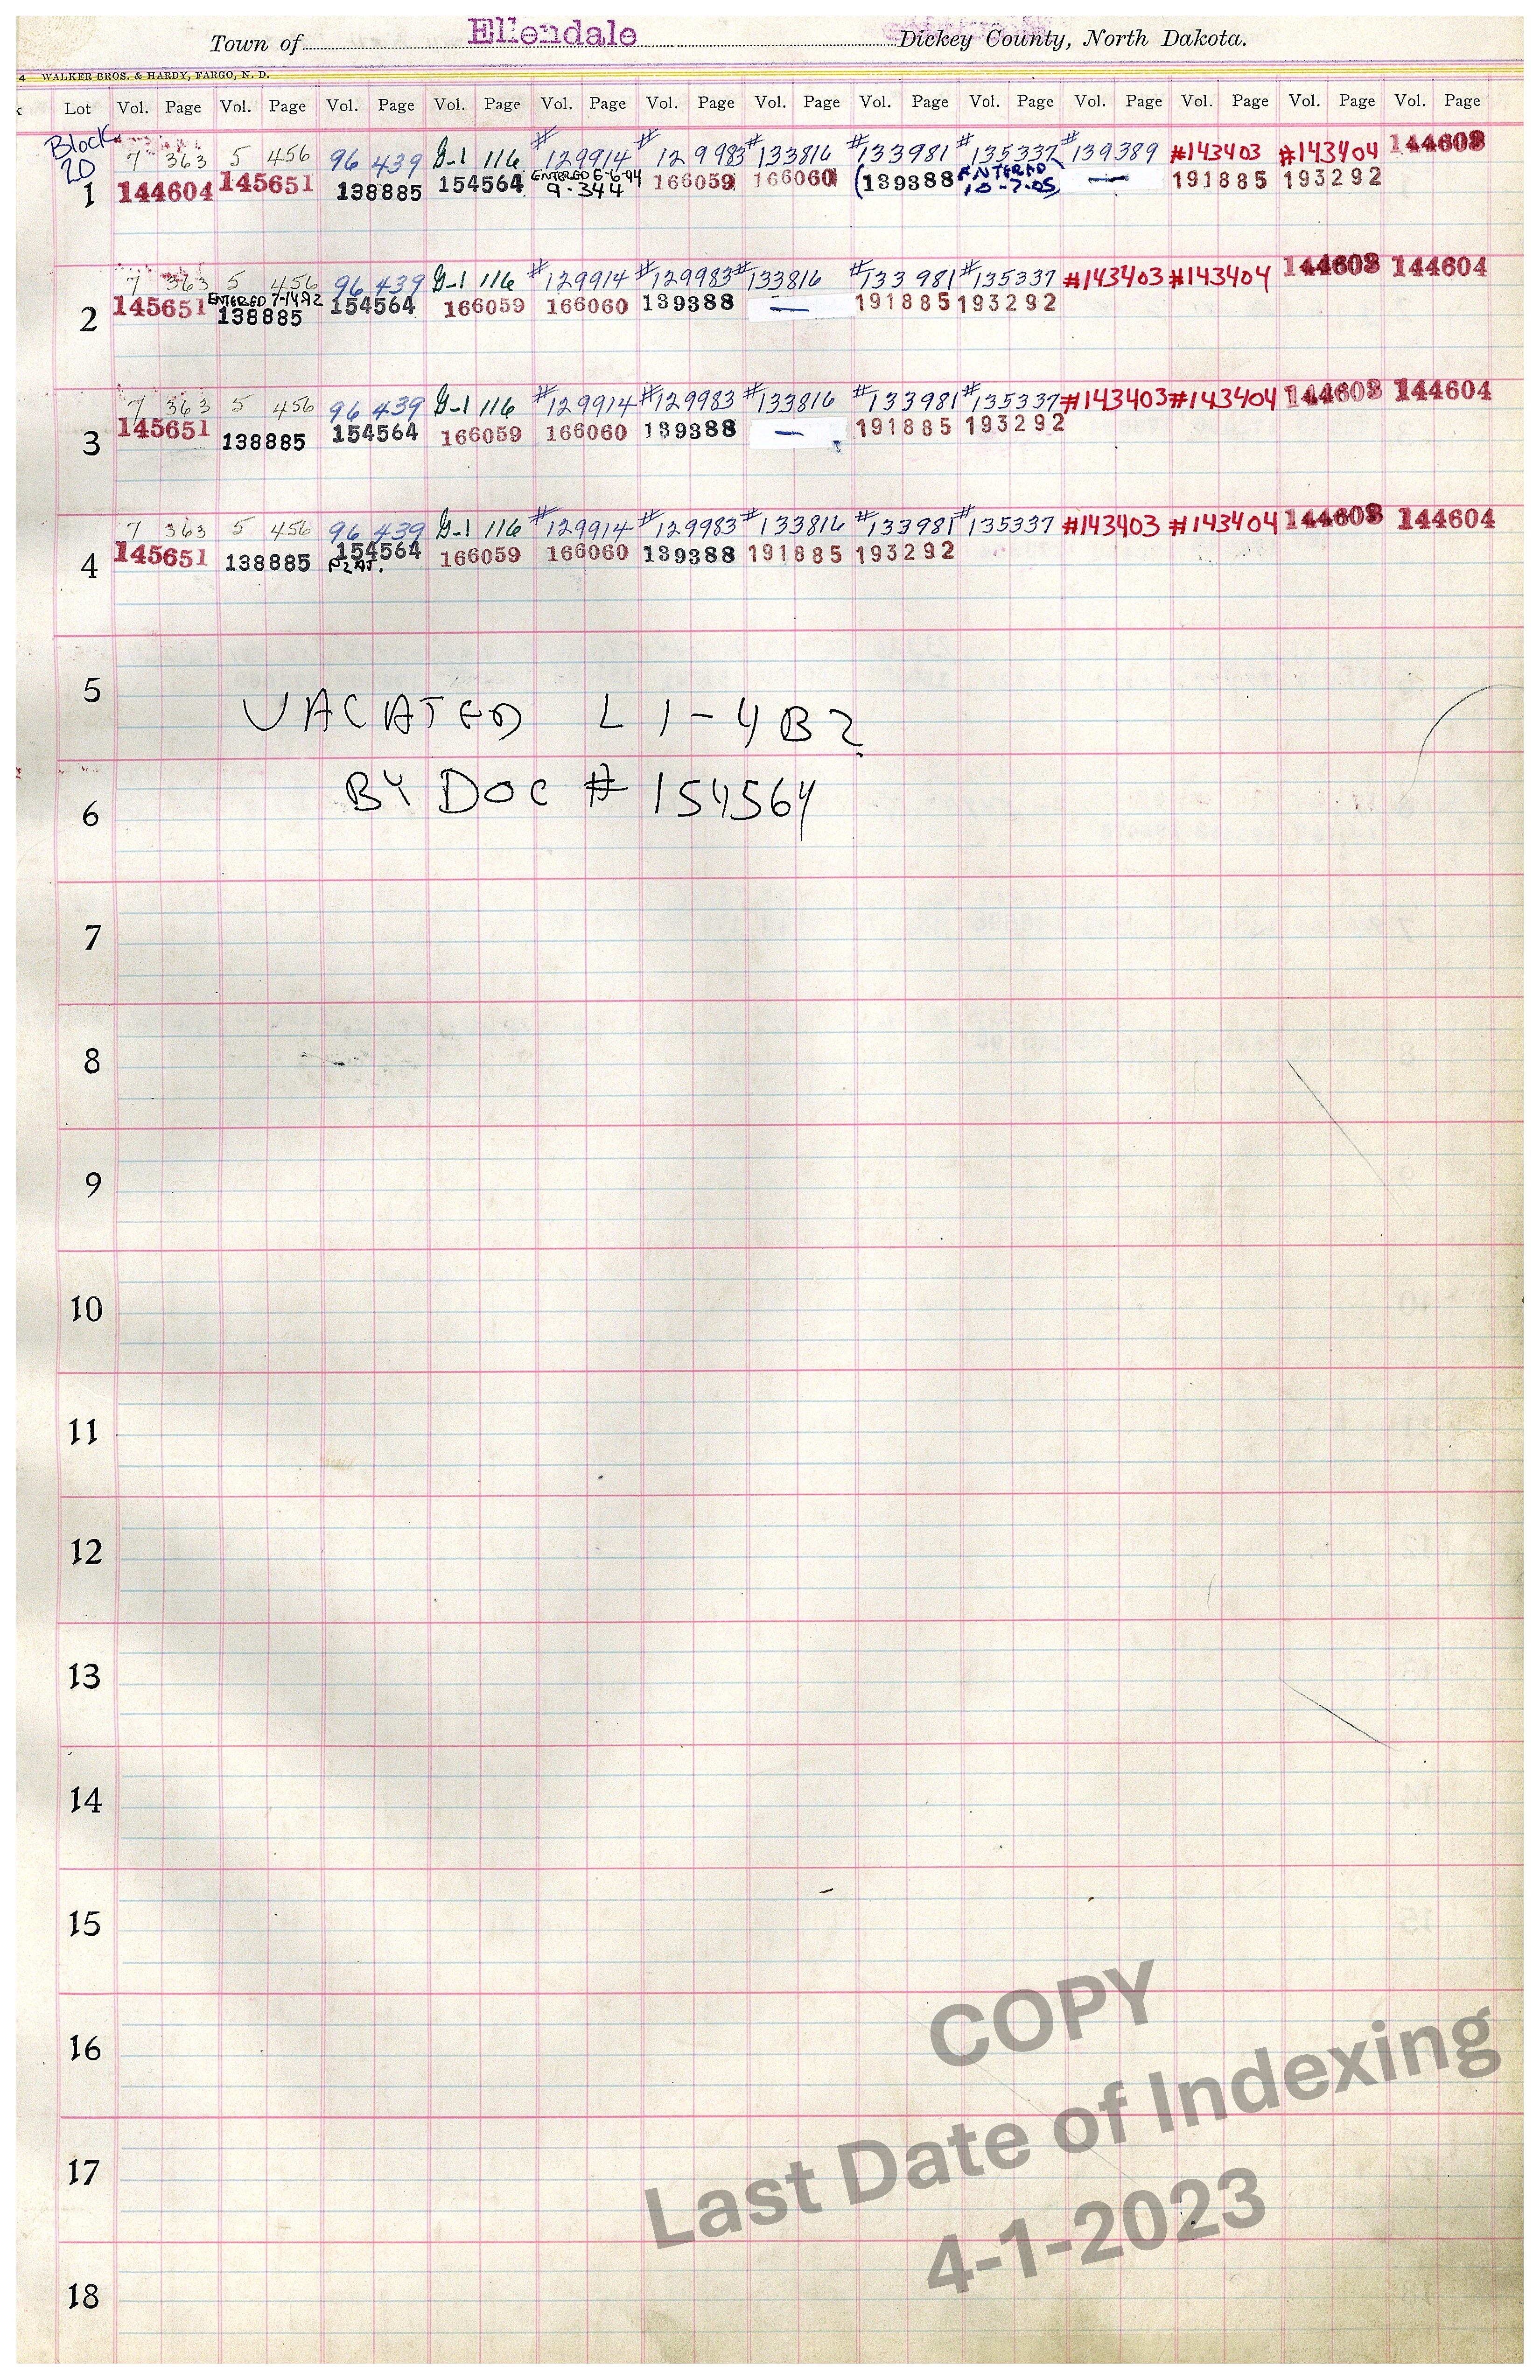 Town of Ellendale Dickey County, North Dakota.
4 WALKER BROS. & HARDY, FARGO, N. D.
k Lot Vol. Page Vol. Page Vol. Page Vol. Page Vol. Page Vol. Page Vol. Page Vol. Page Vol. Page Vol. Page Vol. Page Vol. Page Vol. Page
Block
20
7 363 5 456 96 439 G-1 116 #129914 #129983 #133816 #133981 #135337 #139389 #143403 #143404 144603
1 144604 145651 138885 154564 ENTERED 6-6-94 9-344 166059 166060 (139388 ENTERED 10-7-05) — 191885 193292
7 363 5 456 96 439 G-1 116 #129914 #129983 #133816 #133981 #135337 #143403 #143404 144603 144604
2 145651 ENTERED 7-14-92 138885 154564 166059 166060 139388 — 191885 193292
7 363 5 456 96 439 G-1 116 #129914 #129983 #133816 #133981 #135337 #143403 #143404 144603 144604
3 145651 138885 154564 166059 166060 139388 — 191885 193292
7 363 5 456 96 439 G-1 116 #129914 #129983 #133816 #133981 #135337 #143403 #143404 144603 144604
4 145651 138885 154564 166059 166060 139388 191885 193292
PLAT.
5
VACATED L 1-4 B2
BY DOC # 154564
6
7
8
9
10
11
12
13
14
15
16
17
18
COPY
Last Date of Indexing
4-1-2023